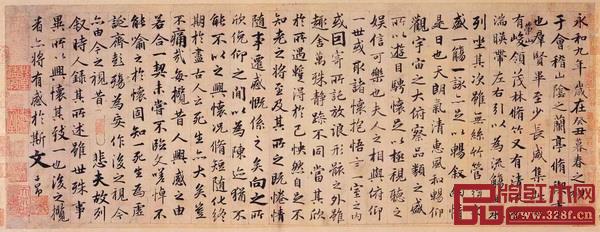 永和九年歲在癸丑暮春之
于會稽山陰之蘭亭脩禊
也群賢畢至少長咸集
有峻領茂林脩竹又有清
崇山
湍暎帶左右引以為流觴
列坐其次雖無絲竹管
盛一觴一詠亦足以暢敘
是日也天朗氣清惠風和暢仰
觀宇宙之大俯察品類之盛
所以遊目騁懷足以極視聽之
娛信可樂也夫人之相與俯仰
一世或取諸懷抱悟言一室之內
或因寄所託放浪形骸之外雖
趣舍萬殊靜躁不同當其欣
於所遇蹔得於己快然自足不
知老之將至及其所之既惓情
隨事遷感慨係之矣向之所
欣俛仰之間以為陳迹猶不
能不以之興懷況脩短隨化終
期於盡古人云死生亦大矣豈
不痛哉每攬昔人興感之由
若合一契未嘗不臨文嗟悼不
能喻之於懷固知一死生為虛
誕齊彭殤為妄作後之視今
亦由今之視昔 悲夫故列
敘時人錄其所述雖世殊事
異所以興懷其致一也後之攬
者亦將有感於斯文 子昂
品牌红木网